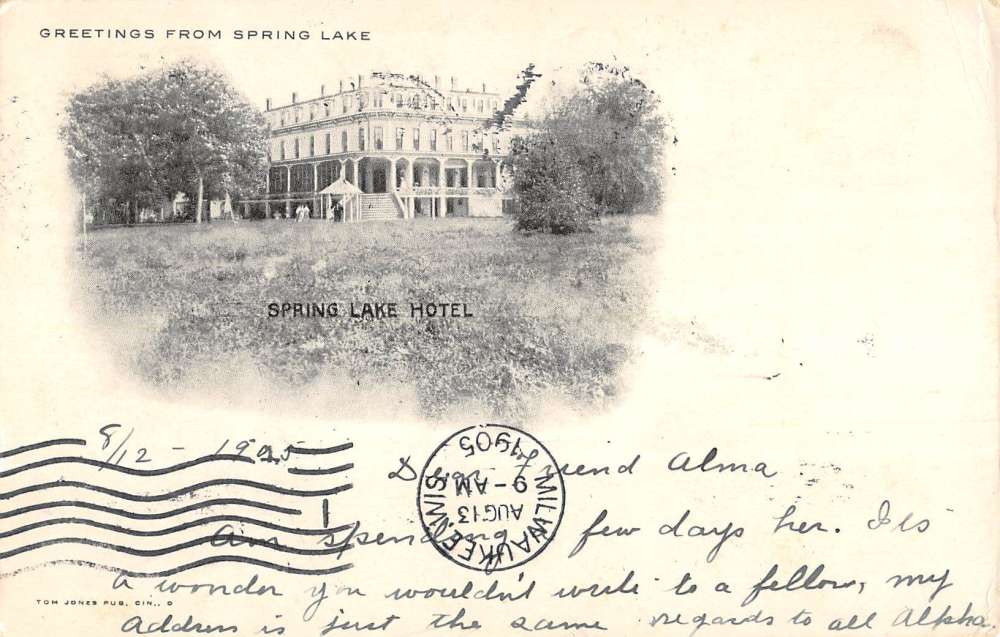 GREETINGS FROM SPRING LAKE
SPRING LAKE HOTEL
8/12 - 1905
MILWAUKEE, WIS.
AUG 13
9 - AM
1905
Dear Friend Alma
Am spending few days her. Its
a wonder you wouldn't write to a fellow, my
Address is just the same regards to all Alpha.
TOM JONES PUB. CIN., O